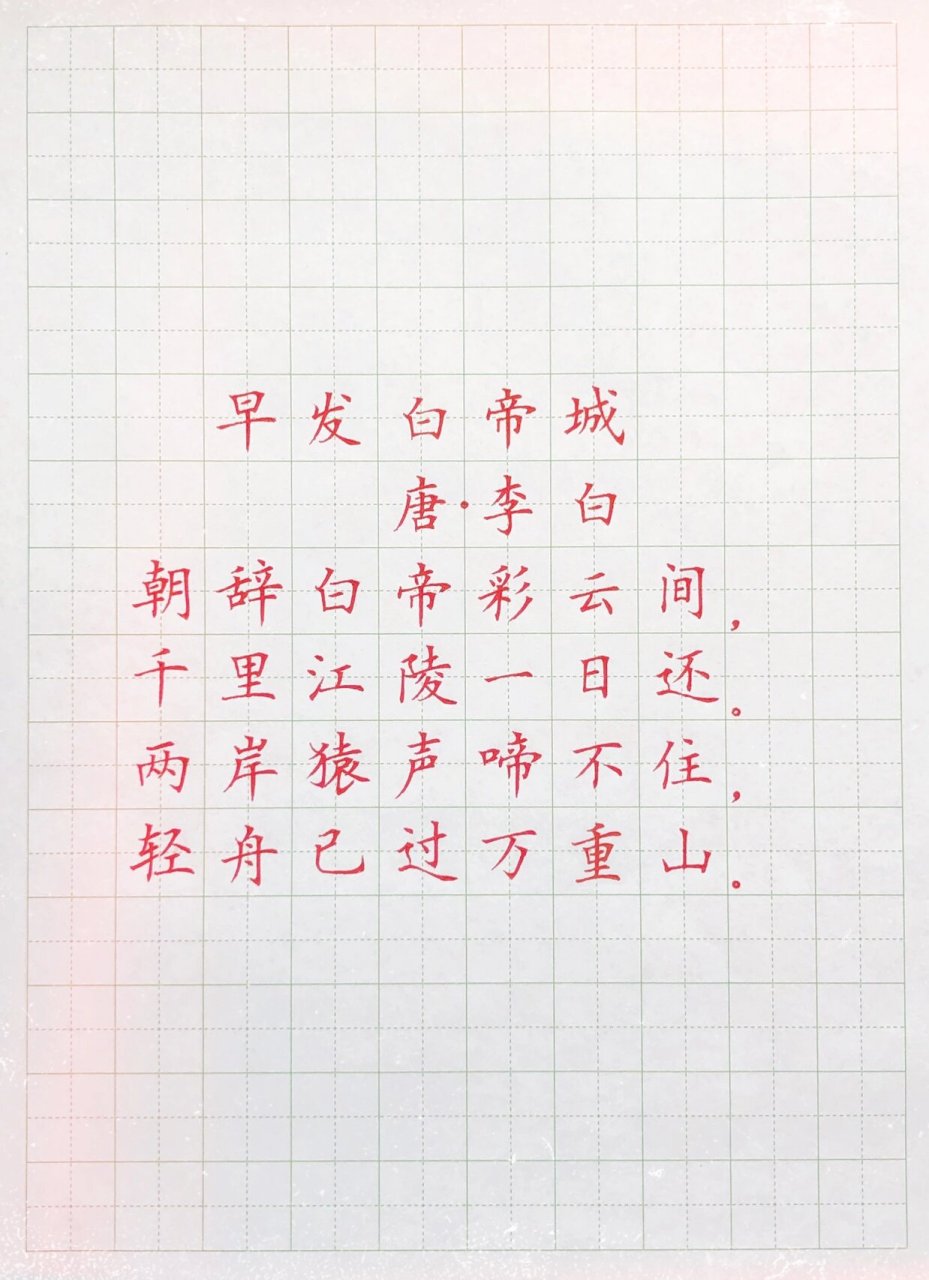 早发白帝城
唐·李白
朝辞白帝彩云间，
千里江陵一日还。
两岸猿声啼不住，
轻舟已过万重山。